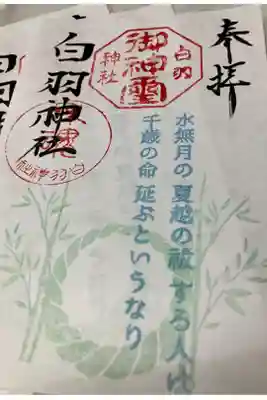 奉拝
白羽
御神璽
神社
水無月の 夏越の祓 する人は
千歳の命 延ぶというなり
白羽神社
白羽神社